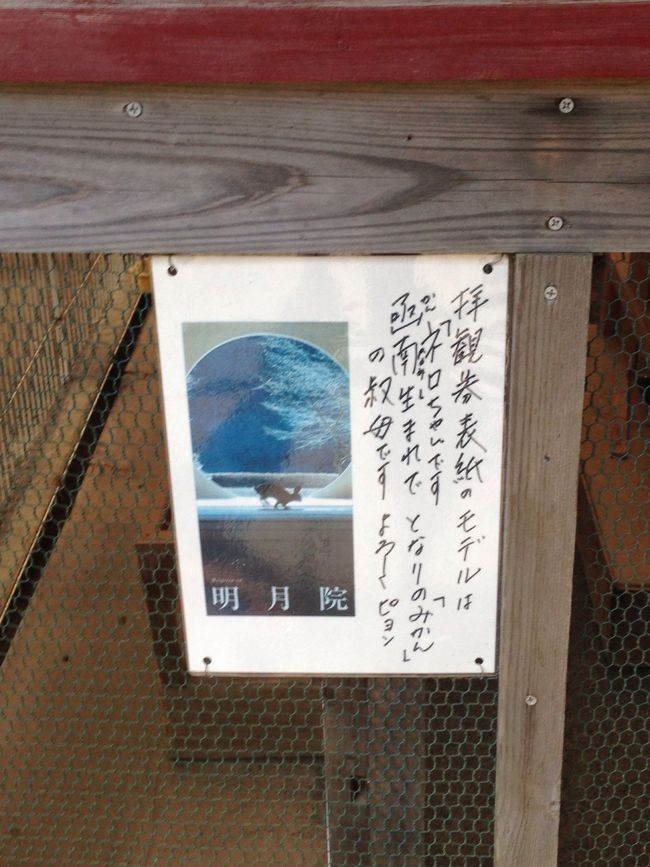 拝観券表紙のモデルは
「ネロちゃん」です
函南生まれで となりの「みかん」
の叔母です よろしくピョン
明月院